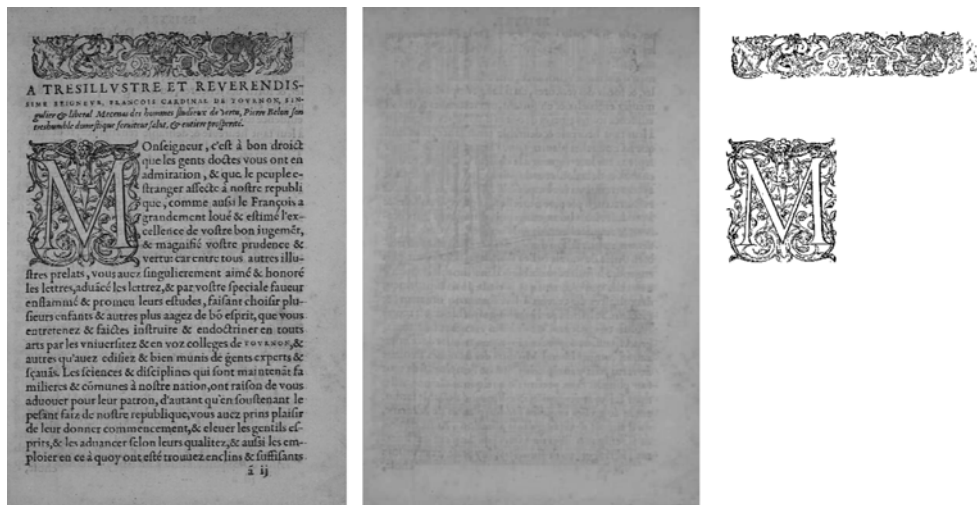 A TRESILLVSTRE ET REVERENDIS-
SIME SEIGNEVR, FRANCOIS CARDINAL DE TOVRNON, SIN-
gulier & liberal Mecenas des hommes studieux de vertu, Pierre Belon son
treshumble domestique seruiteur salut, & entiere prosperité.
MOnseigneur, c'est à bon droict
que les gents doctes vous ont en
admiration, & que le peuple e-
stranger affecte à nostre republi
que, comme aussi le François a
grandement loué & estimé l'ex-
cellence de vostre bon iugemẽt,
& magnifié vostre prudence &
vertu: car entre tous autres illu-
stres prelats, vous auez singulierement aimé & honoré
les lettres, aduãcé les lettrez, & par vostre speciale faueur
enflammé & promeu leurs estudes, faisant choisir plu-
sieurs enfants & autres plus aagez de bõ esprit, que vous
entretenez & faictes instruire & endoctriner en touts
arts par les vniuersitez & en voz colleges de TOVRNON, &
autres qu'auez edifiez & bien munis de gents experts &
sçauãs. Les sciences & disciplines qui sont maintenãt fa
milieres & cõmunes à nostre nation, ont raison de vous
aduouer pour leur patron, d'autant qu'en soustenant le
pesant faiz de nostre republique, vous auez prins plaisir
de leur donner commencement, & eleuer les gentils es-
prits, & les aduancer selon leurs qualitez, & aussi les em-
ploier en ce à quoy ont esté trouuez enclins & suffisants
ã ij
M